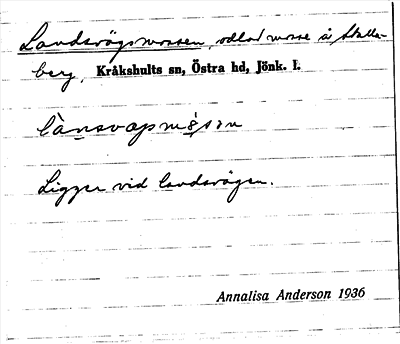 Landsvägsmossen, odlad mosse å Skälle-
berg, Kråkshults sn, Östra hd, Jönk. l.
Ligger vid landsvägen.
Annalisa Anderson 1936